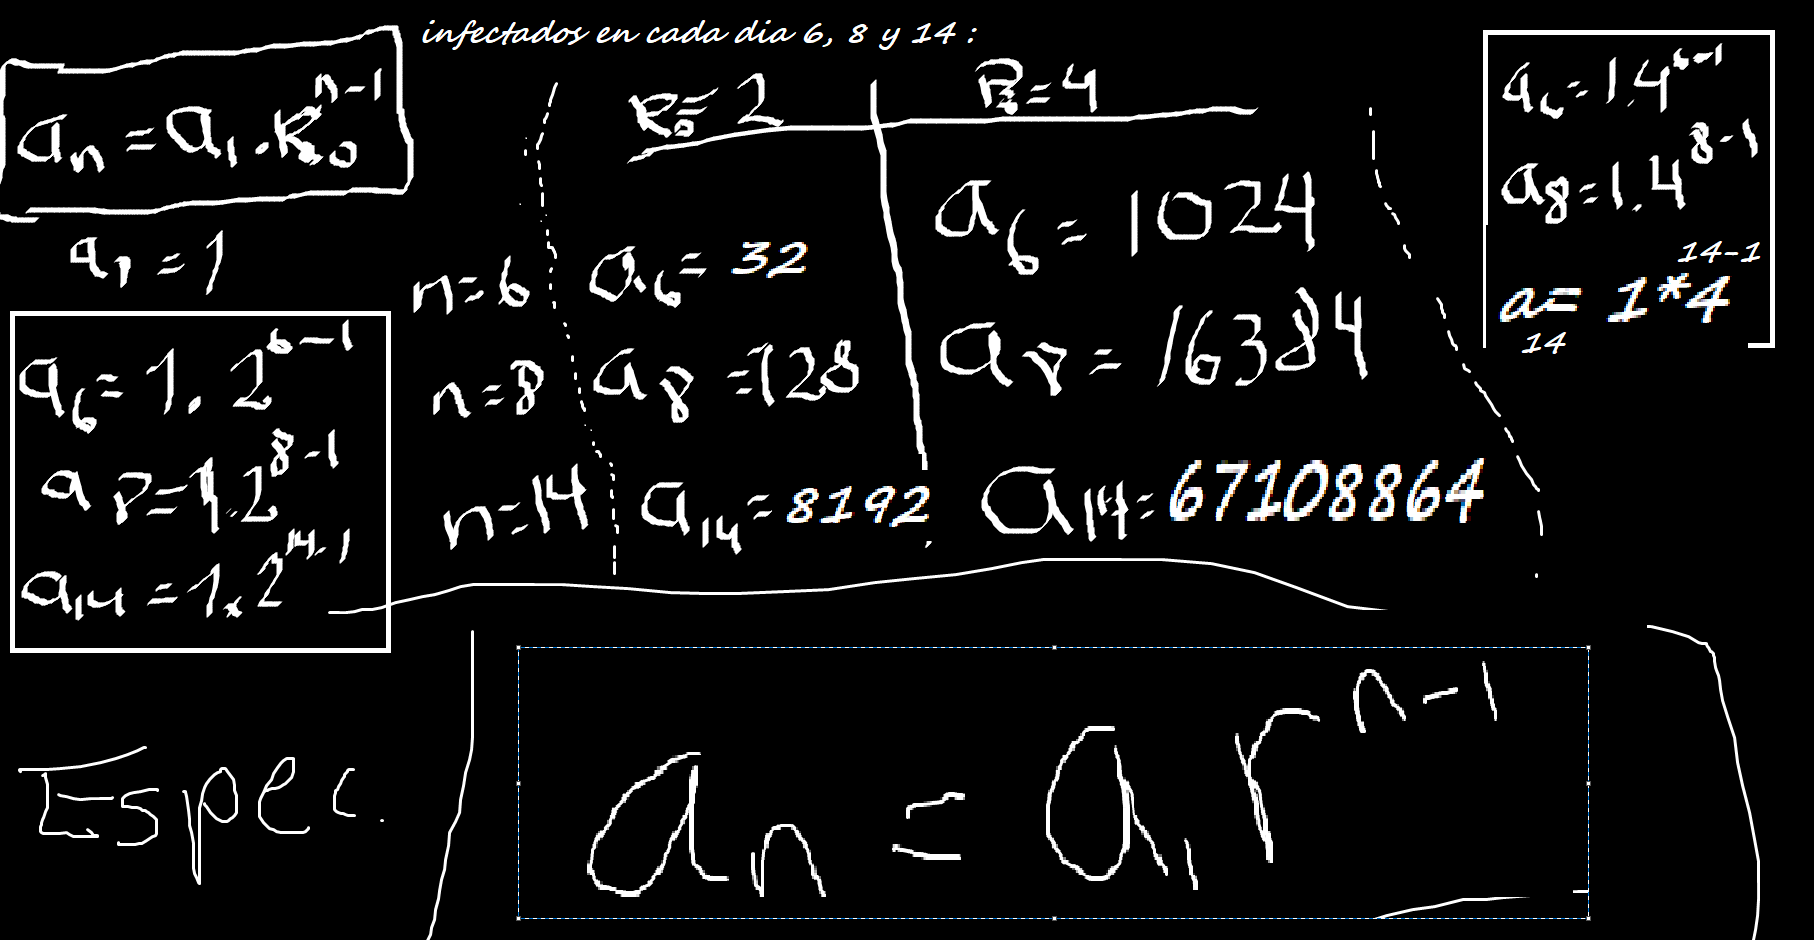 infectados en cada dia 6, 8 y 14 :
aₙ = a₁ . R₀ⁿ⁻¹
a₁ = 1
a₆ = 1 . 2⁶⁻¹
a₈ = 1 . 2⁸⁻¹
a₁₄ = 1 . 2¹⁴⁻¹
R₀ = 2 R₀ = 4
n = 6 a₆ = 32 a₆ = 1024
n = 8 a₈ = 128 a₈ = 16384
n = 14 a₁₄ = 8192 a₁₄ = 67108864
a₆ = 1 . 4⁶⁻¹
a₈ = 1 . 4⁸⁻¹
a₁₄ = 1*4¹⁴⁻¹
Espec.
aₙ = a₁ rⁿ⁻¹